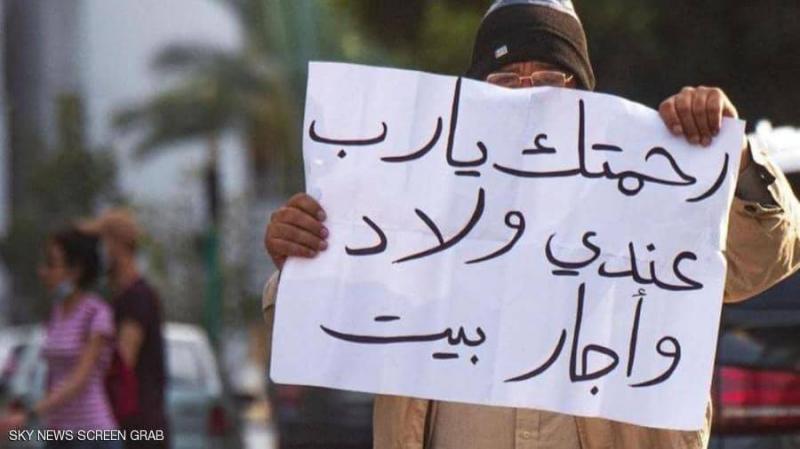 رحمتك يارب
عندي ولاد
وأجار بيت
SKY NEWS SCREEN GRAB